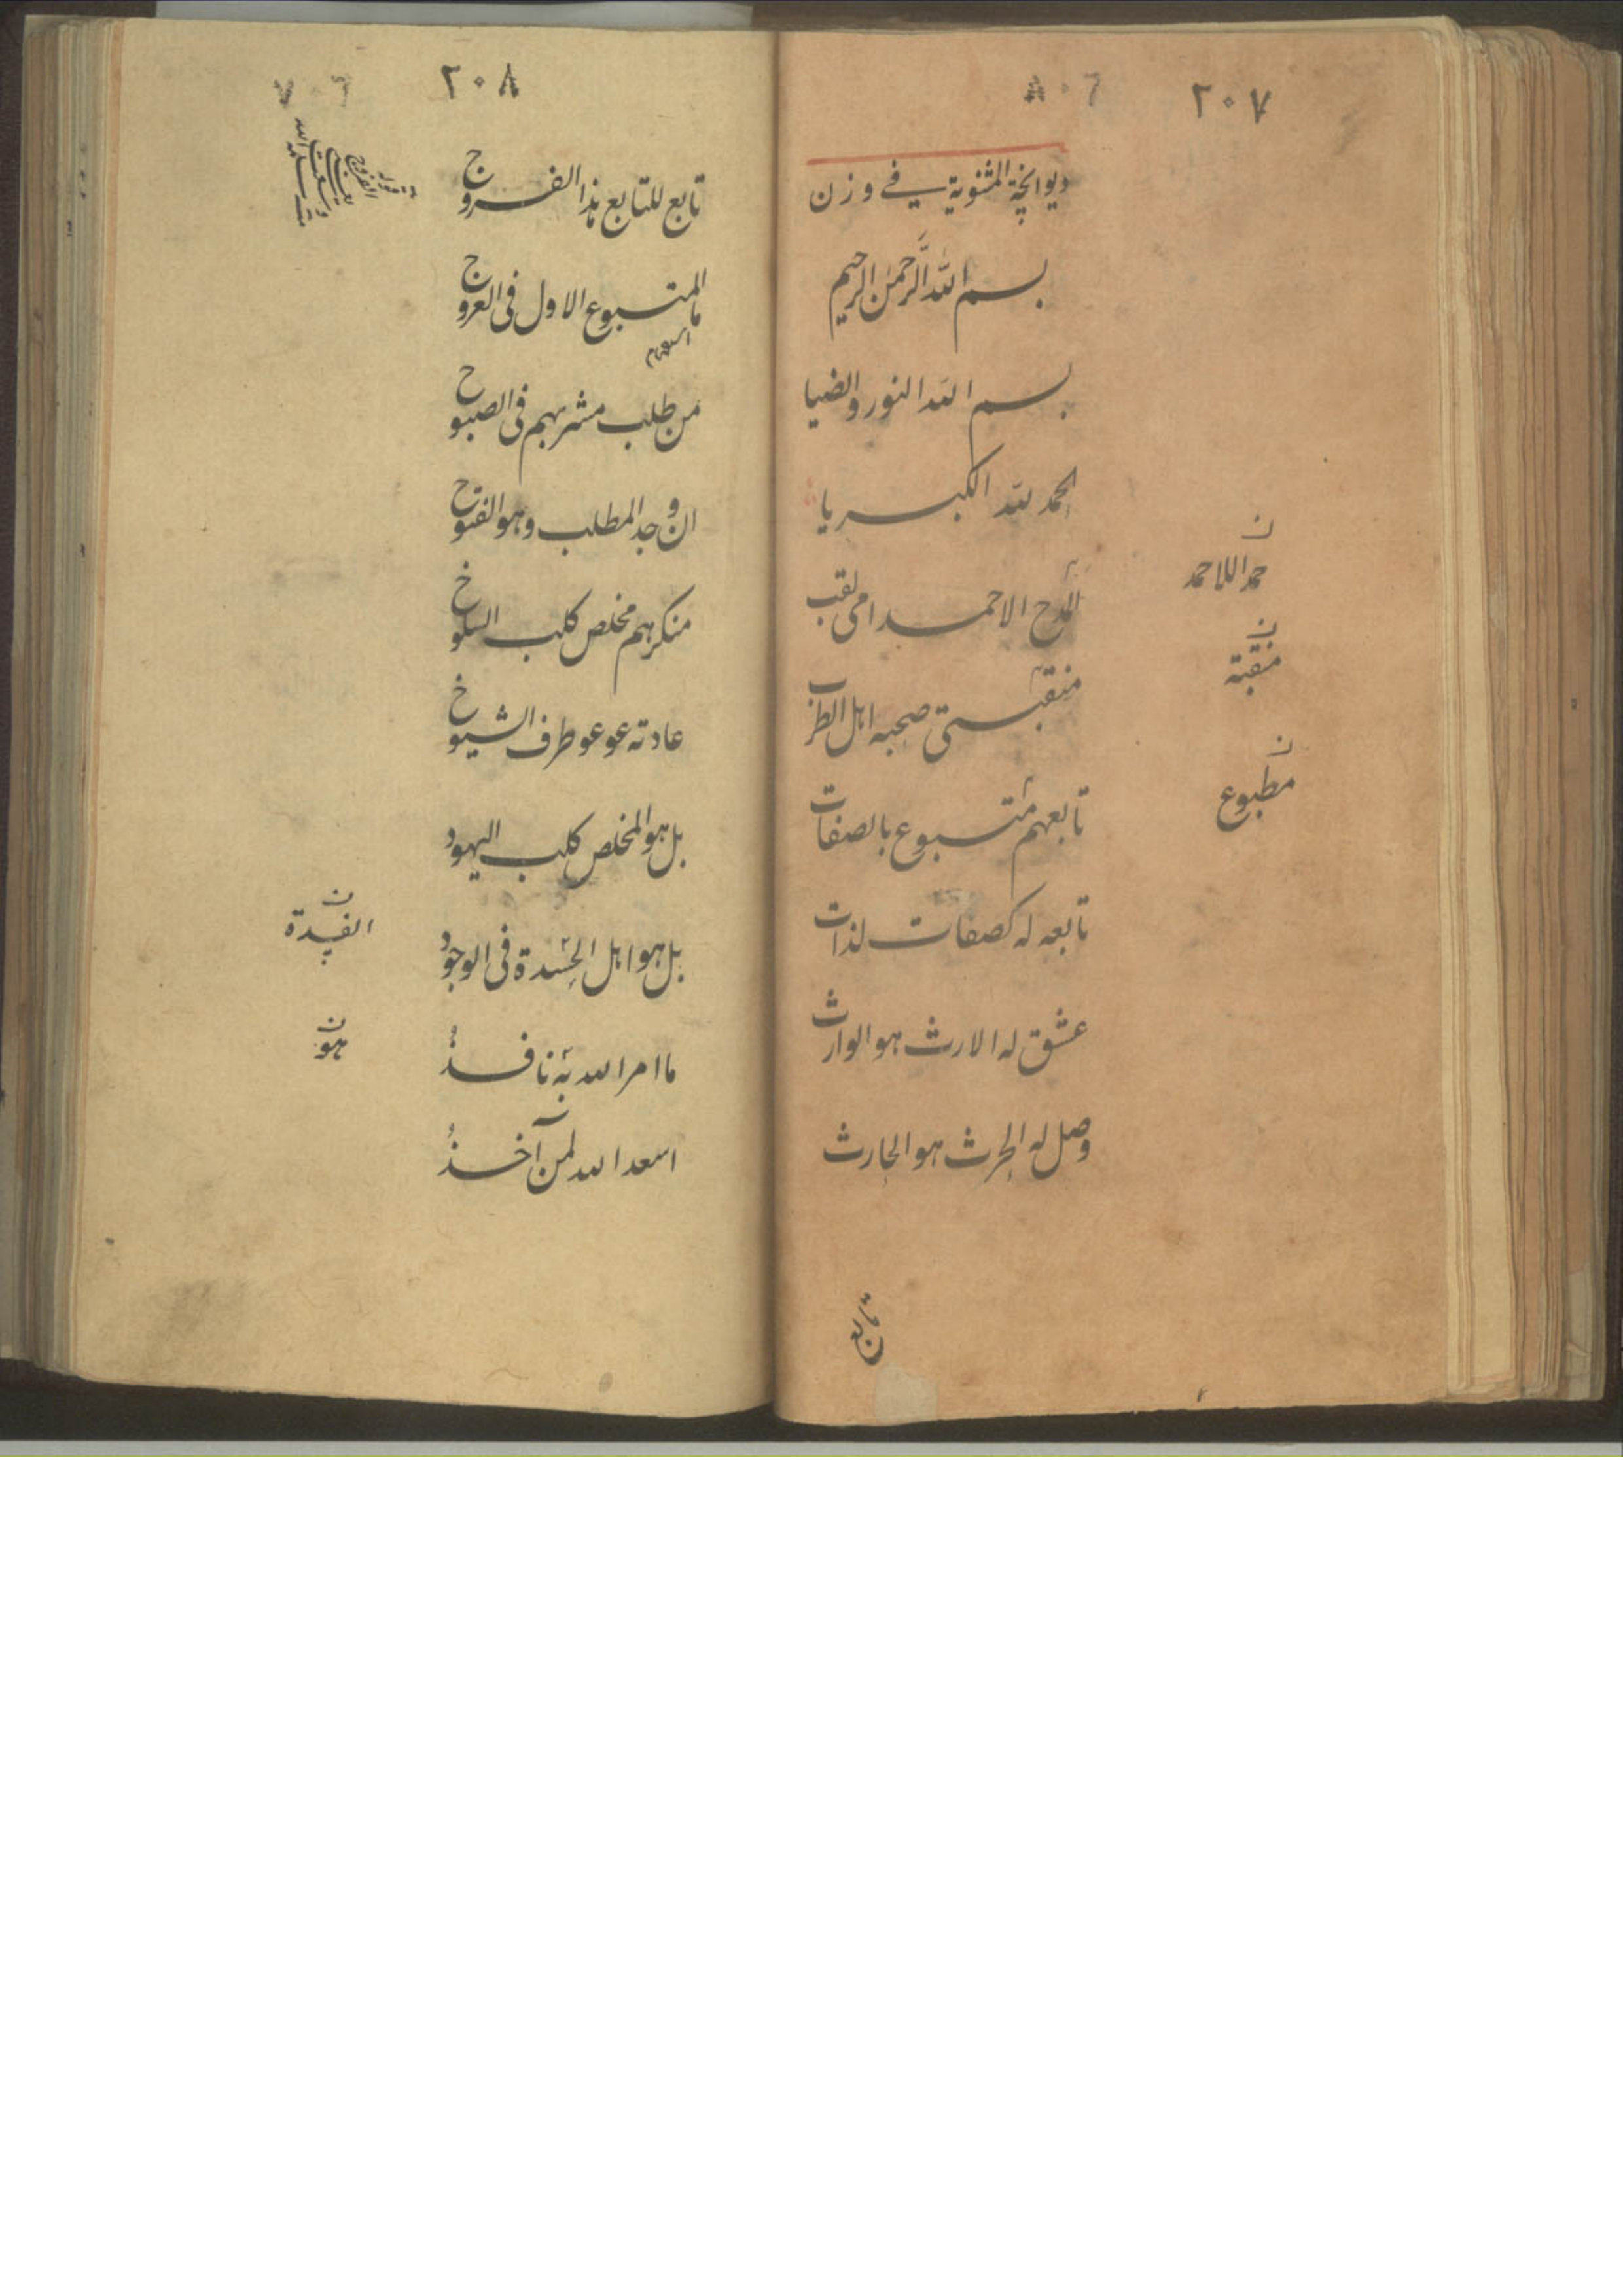 ٢٠٧
ديوانچة المثنوية في وزن
بسم الله الرحمن الرحيم
بسم الله النور والضيا
الحمد لله الكبريا
المدح الاحمد امی لقب
منقبتی صحبه اهل الطرب
تابعهم متبوع بالصفات
تابعه له كصفات لذات
عشق له الارث هو الوارث
وصل له الحرث هو الحارث
ن
حمد اللاحمد
ن
منقبة
ن
مطبوع
٢٠٨
تابع للتابع هذا الفروج
ما المتبوع الاول فی العروج
من طلب مشربهم فی الصبوح
ان وجد المطلب وهو الفتوح
منكرهم مخلص كلب السلوخ
عادته عوعو طرف الشيوخ
بل هو المخلص كلب اليهود
بل هو اهل الحسدة فی الوجود
ما امر الله به نافذ
اسعد الله لمن آخذ
ن
هو